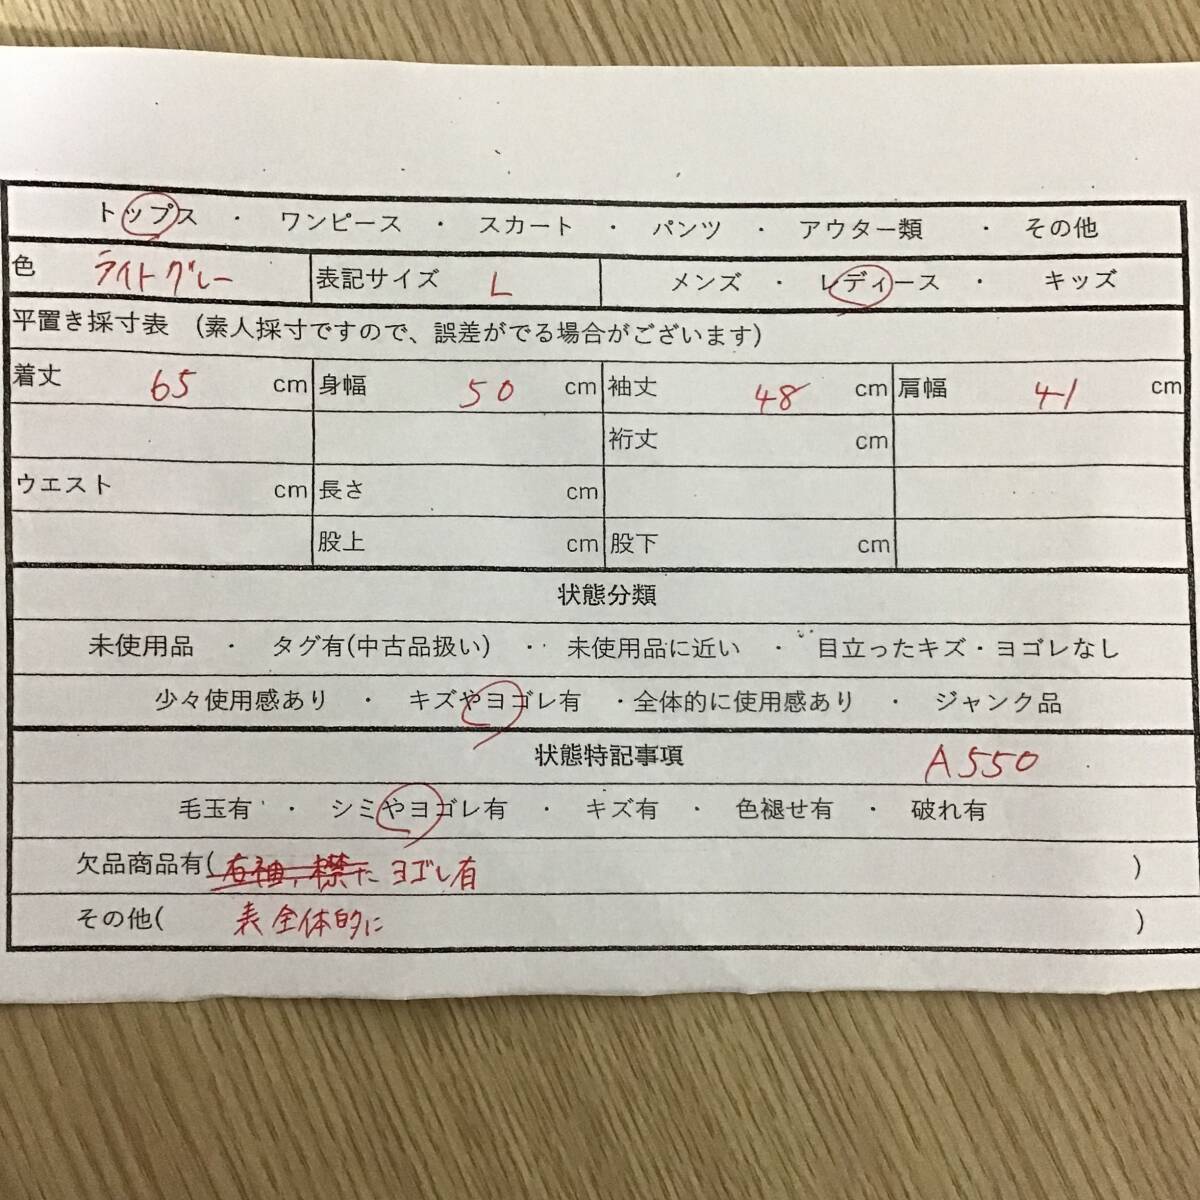 トップス ・ ワンピース ・ スカート ・ パンツ ・ アウター類 ・ その他
色 ライトグレー 表記サイズ L メンズ ・ レディース ・ キッズ
平置き採寸表 (素人採寸ですので、誤差がでる場合がございます)
着丈 65 cm 身幅 50 cm 袖丈 48 cm 肩幅 41 cm
裄丈 cm
ウエスト cm 長さ cm
股上 cm 股下 cm
状態分類
未使用品 ・ タグ有(中古品扱い) ・ 未使用品に近い ・ 目立ったキズ・ヨゴレなし
少々使用感あり ・ キズやヨゴレ有 ・全体的に使用感あり ・ ジャンク品
状態特記事項 A550
毛玉有 ・ シミやヨゴレ有 ・ キズ有 ・ 色褪せ有 ・ 破れ有
欠品商品有(右袖、襟に ヨゴレ有 )
その他( 表全体的に )